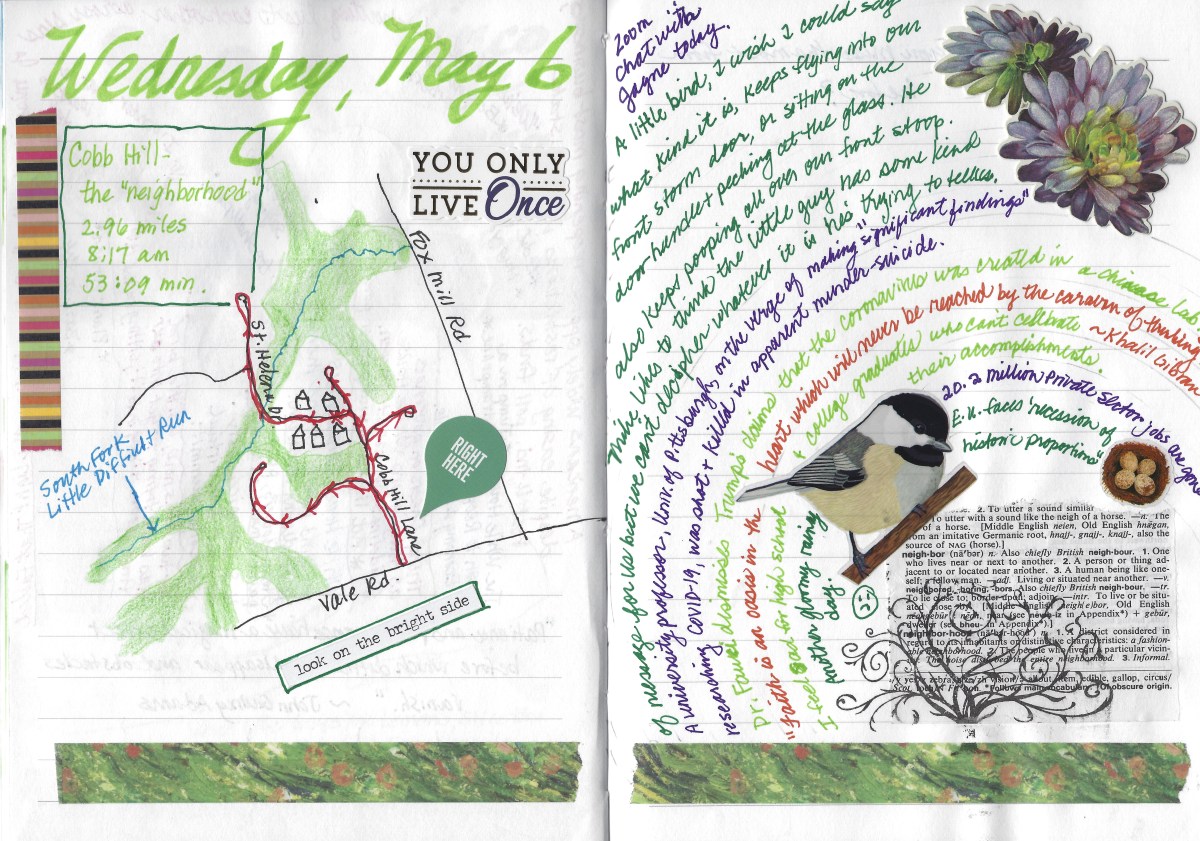 Wednesday, May 6
Cobb Hill-
the "neighborhood"
2.96 miles
8:17 am
53:09 min.
YOU ONLY
LIVE Once
Fox Mill Rd
St. Helena Dr
RIGHT
HERE
South Fork
Little Difficult Run
Cobb Hill Lane
Vale Rd.
look on the bright side
Zoom
chat with
Jayne today.
A little bird, I wish I could say
what kind it is, keeps flying into our
front storm door, or sitting on the
door handle + pecking at the glass. He
also keeps pooping all over our front stoop.
Mike likes to think the little guy has some kind
of message for us but we can't decipher whatever it is he's trying to tell us.
A university professor, Univ. of Pittsburgh, on the verge of making "significant findings"
researching COVID-19, was shot + killed in apparent murder-suicide.
Dr. Fauci dismisses Trump's claims that the coronavirus was created in a Chinese lab
"Faith is an oasis in the heart which will never be reached by the caravan of thinking
~Khalil Gibran
I feel sad for high school + college graduates who can't celebrate
their accomplishments.
Another gloomy rainy
day.
20.2 million private sector jobs are gone
E.U. faces "recession of
historic proportions"
2. To utter a sound similar
To utter with a sound like the neigh of a horse. —n. The
of a horse. [Middle English neien, Old English hnǣgan,
from an imitative Germanic root, hnajj-, gnajj-, knajj-, also the
source of NAG (horse).]
neigh·bor (nā′bər) n. Also chiefly British neigh·bour. 1. One
who lives near or next to another. 2. A person or thing ad-
jacent to or located near another. 3. A human being like one-
self; a fellow man. —adj. Living or situated near another. —v.
neighbored, -boring, -bors. Also chiefly British neigh·bour. —tr.
To lie close to; border upon; adjoin. —intr. To live or be situ-
ated close by. [Middle English neighebor, Old English
+ gebūr,
dweller (see bheu- in Appendix*).]
neigh·bor·hood (nā′bər-ho͝od′) n. 1. A district considered in
regard to its inhabitants or distinctive characteristics: a fashion-
able neighborhood. 2. The people who live in a particular vicin-
ity: The noise disturbed the entire neighborhood. 3. Informal.
edible, gallop, circus/
*Follows main vocabulary. Of obscure origin.